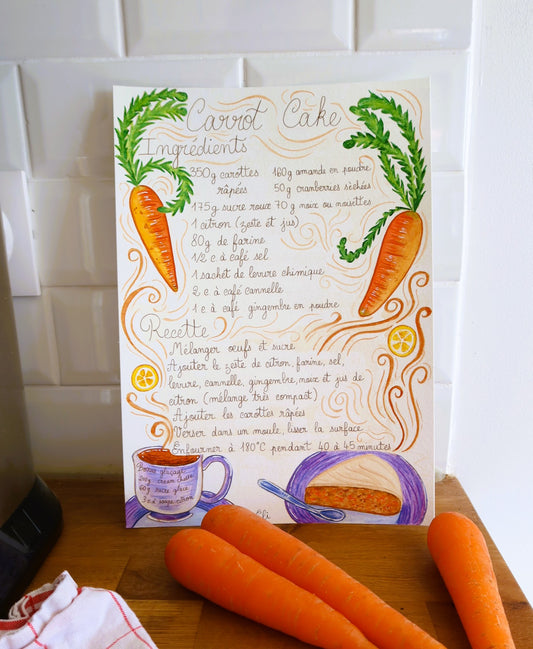 Carrot Cake
Ingrédients
350g carottes râpées
175g sucre roux
160g amande en poudre
50g cranberries séchées
70g noix ou noisettes
1 citron (zeste et jus)
80g de farine
1/2 c à café sel
1 sachet de levure chimique
2 c à café cannelle
1 c à café gingembre en poudre
Recette
Mélanger oeufs et sucre
Ajouter le zeste de citron, farine, sel,
levure, cannelle, gingembre, noix et jus de
citron (mélange très compact)
Ajouter les carottes râpées
Verser dans un moule, lisser la surface
Enfourner à 180°C pendant 40 à 45 minutes
glaçage
cream cheese
60g sucre glace
citron